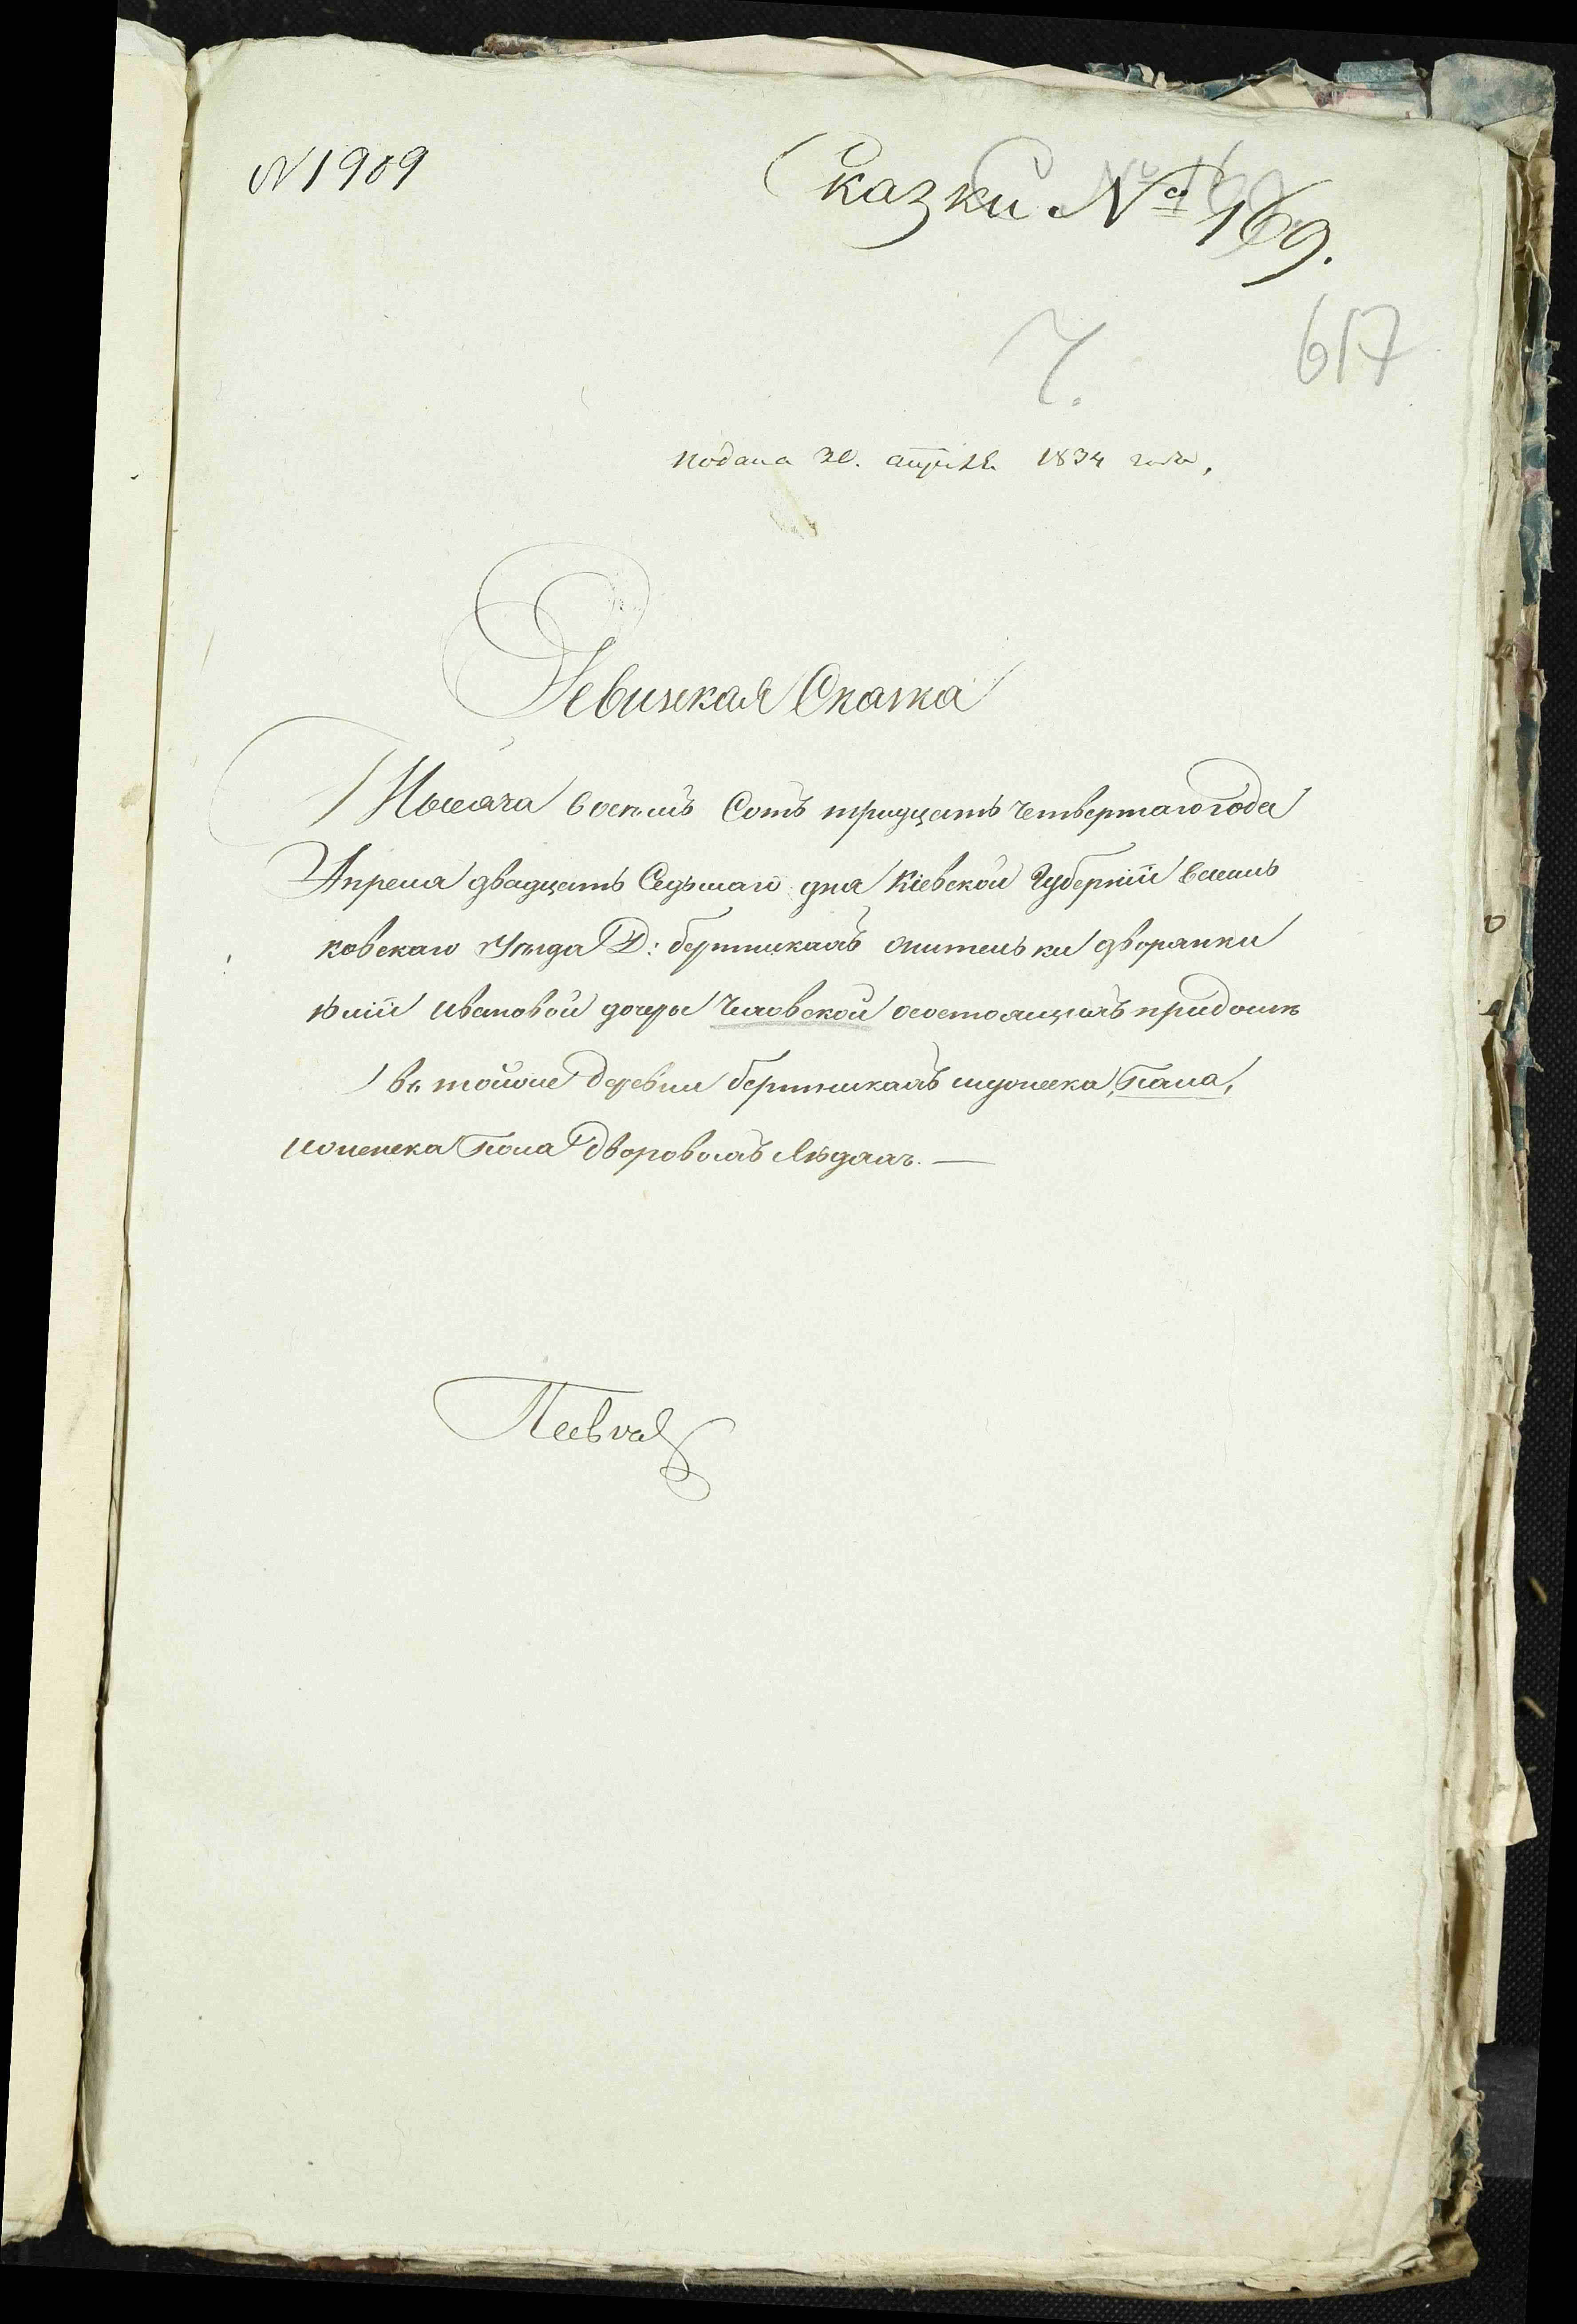 N 1909
Сказки № 169.
617
подана 30. апреля 1834 года,
Ревизская Сказка
Тысяча восемь Сотъ тридцать четвертаго года
Апреля двадцать Седьмаго дня Кіевской Губерніи Василь
ковскаго уѣзда Д: бертникахъ жительки дворянки
Ивановой дочеры Чиховской осостоящихъ придомѣ
въ тойже деревни бертникахъ мужеска пола,
иженска пола дворовыхъ людяхъ. —